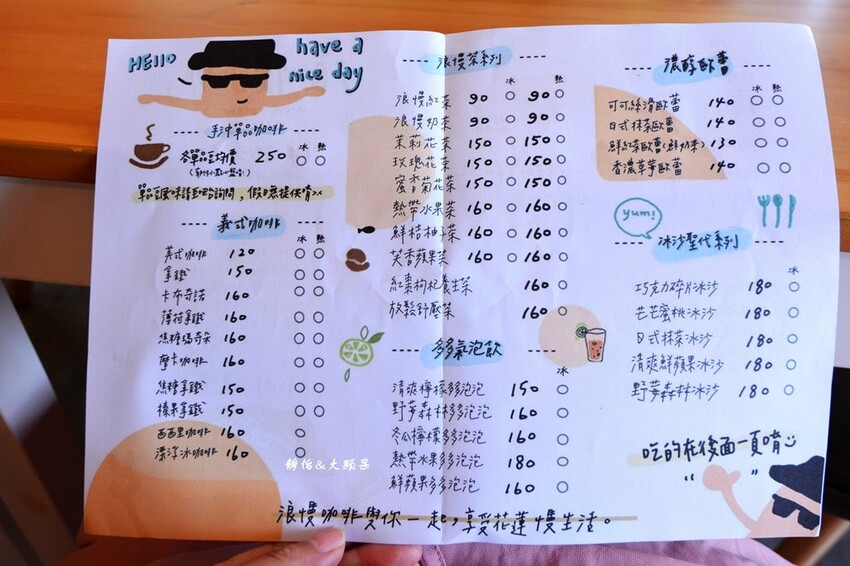 HEllo
have a
nice day
手沖單品咖啡
冰 熱
各單品豆均價 250 ○ ○
單品豆風味請至吧台詢問，假日無提供唷>×
義式咖啡
冰 熱
美式咖啡 120 ○ ○
拿鐵 150 ○ ○
卡布奇諾 160 ○ ○
薄荷拿鐵 160 ○ ○
焦糖瑪奇朵 160 ○ ○
摩卡咖啡 160 ○ ○
焦糖拿鐵 150 ○ ○
榛果拿鐵 150 ○ ○
西西里咖啡 160 ○
漂浮冰咖啡 160 ○
浪慢茶系列
冰 熱
浪慢紅茶 90 ○ 90 ○
浪慢奶茶 90 ○ 90 ○
茉莉花茶 150 ○ 150 ○
玫瑰花茶 150 ○ 150 ○
蜜香菊花茶 150 ○ 150 ○
熱帶水果茶 160 ○ 160 ○
鮮桔柚子茶 160 ○ 160 ○
芙香蘋果茶 160 ○ 160 ○
紅棗枸杞養生茶 160 ○
放鬆舒壓茶 160 ○
多多氣泡飲
冰
清爽檸檬多多泡泡 150 ○
野莓森林多多泡泡 160 ○
冬瓜檸檬多多泡泡 160 ○
熱帶水果多多泡泡 180 ○
鮮蘋果多多泡泡 160 ○
濃醇歐蕾
冰 熱
可可絲滑歐蕾 140 ○ ○
日式抹茶歐蕾 140 ○ ○
鮮紅茶歐蕾(鮮奶茶) 130 ○ ○
香濃草莓歐蕾 140 ○ ○
yum!
冰沙聖代系列
冰
巧克力碎片冰沙 180 ○
芒芒蜜桃冰沙 180 ○
日式抹茶冰沙 180 ○
清爽鮮蘋果冰沙 180 ○
野莓森林冰沙 180 ○
吃的在後面一頁唷
靜怡&大顆呆
浪慢咖啡與你一起，享受花蓮慢生活。